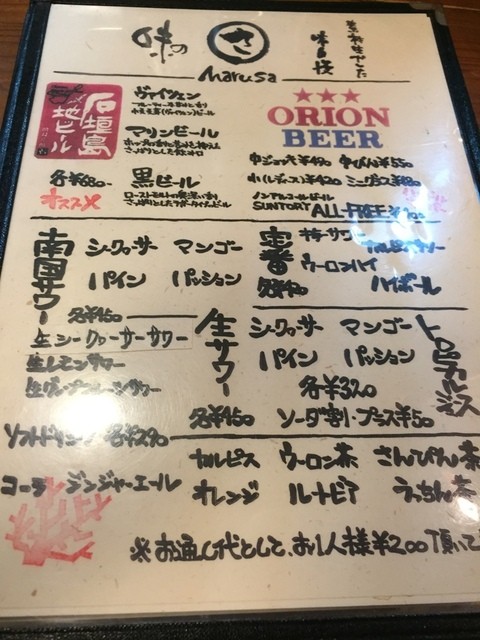 味の
さ
Marusa
石垣島
地ビール
各¥680-
オススメ
ヴァイツェン
マリンビール
黒ビール
ORION
BEER
中ジョッキ¥490 中びん¥550
ノンアルコールビール
SUNTORY ALL-FREE
南国サワー
シークヮーサー マンゴー
パイン パッション
各¥450
定番
ウーロンハイ
ハイボール
生サワー
生シークヮーサーサワー
生レモンサワー
生グレープフルーツサワー
各¥450
トロピカルジュース
シークヮーサー マンゴー
パイン パッション
各¥320
ソーダ割プラス¥50
ソフトドリンク 各¥290
コーラ ジンジャーエール
カルピス ウーロン茶 さんぴん茶
オレンジ ルートビア うっちん茶
※お通し代として、お1人様¥200頂いて